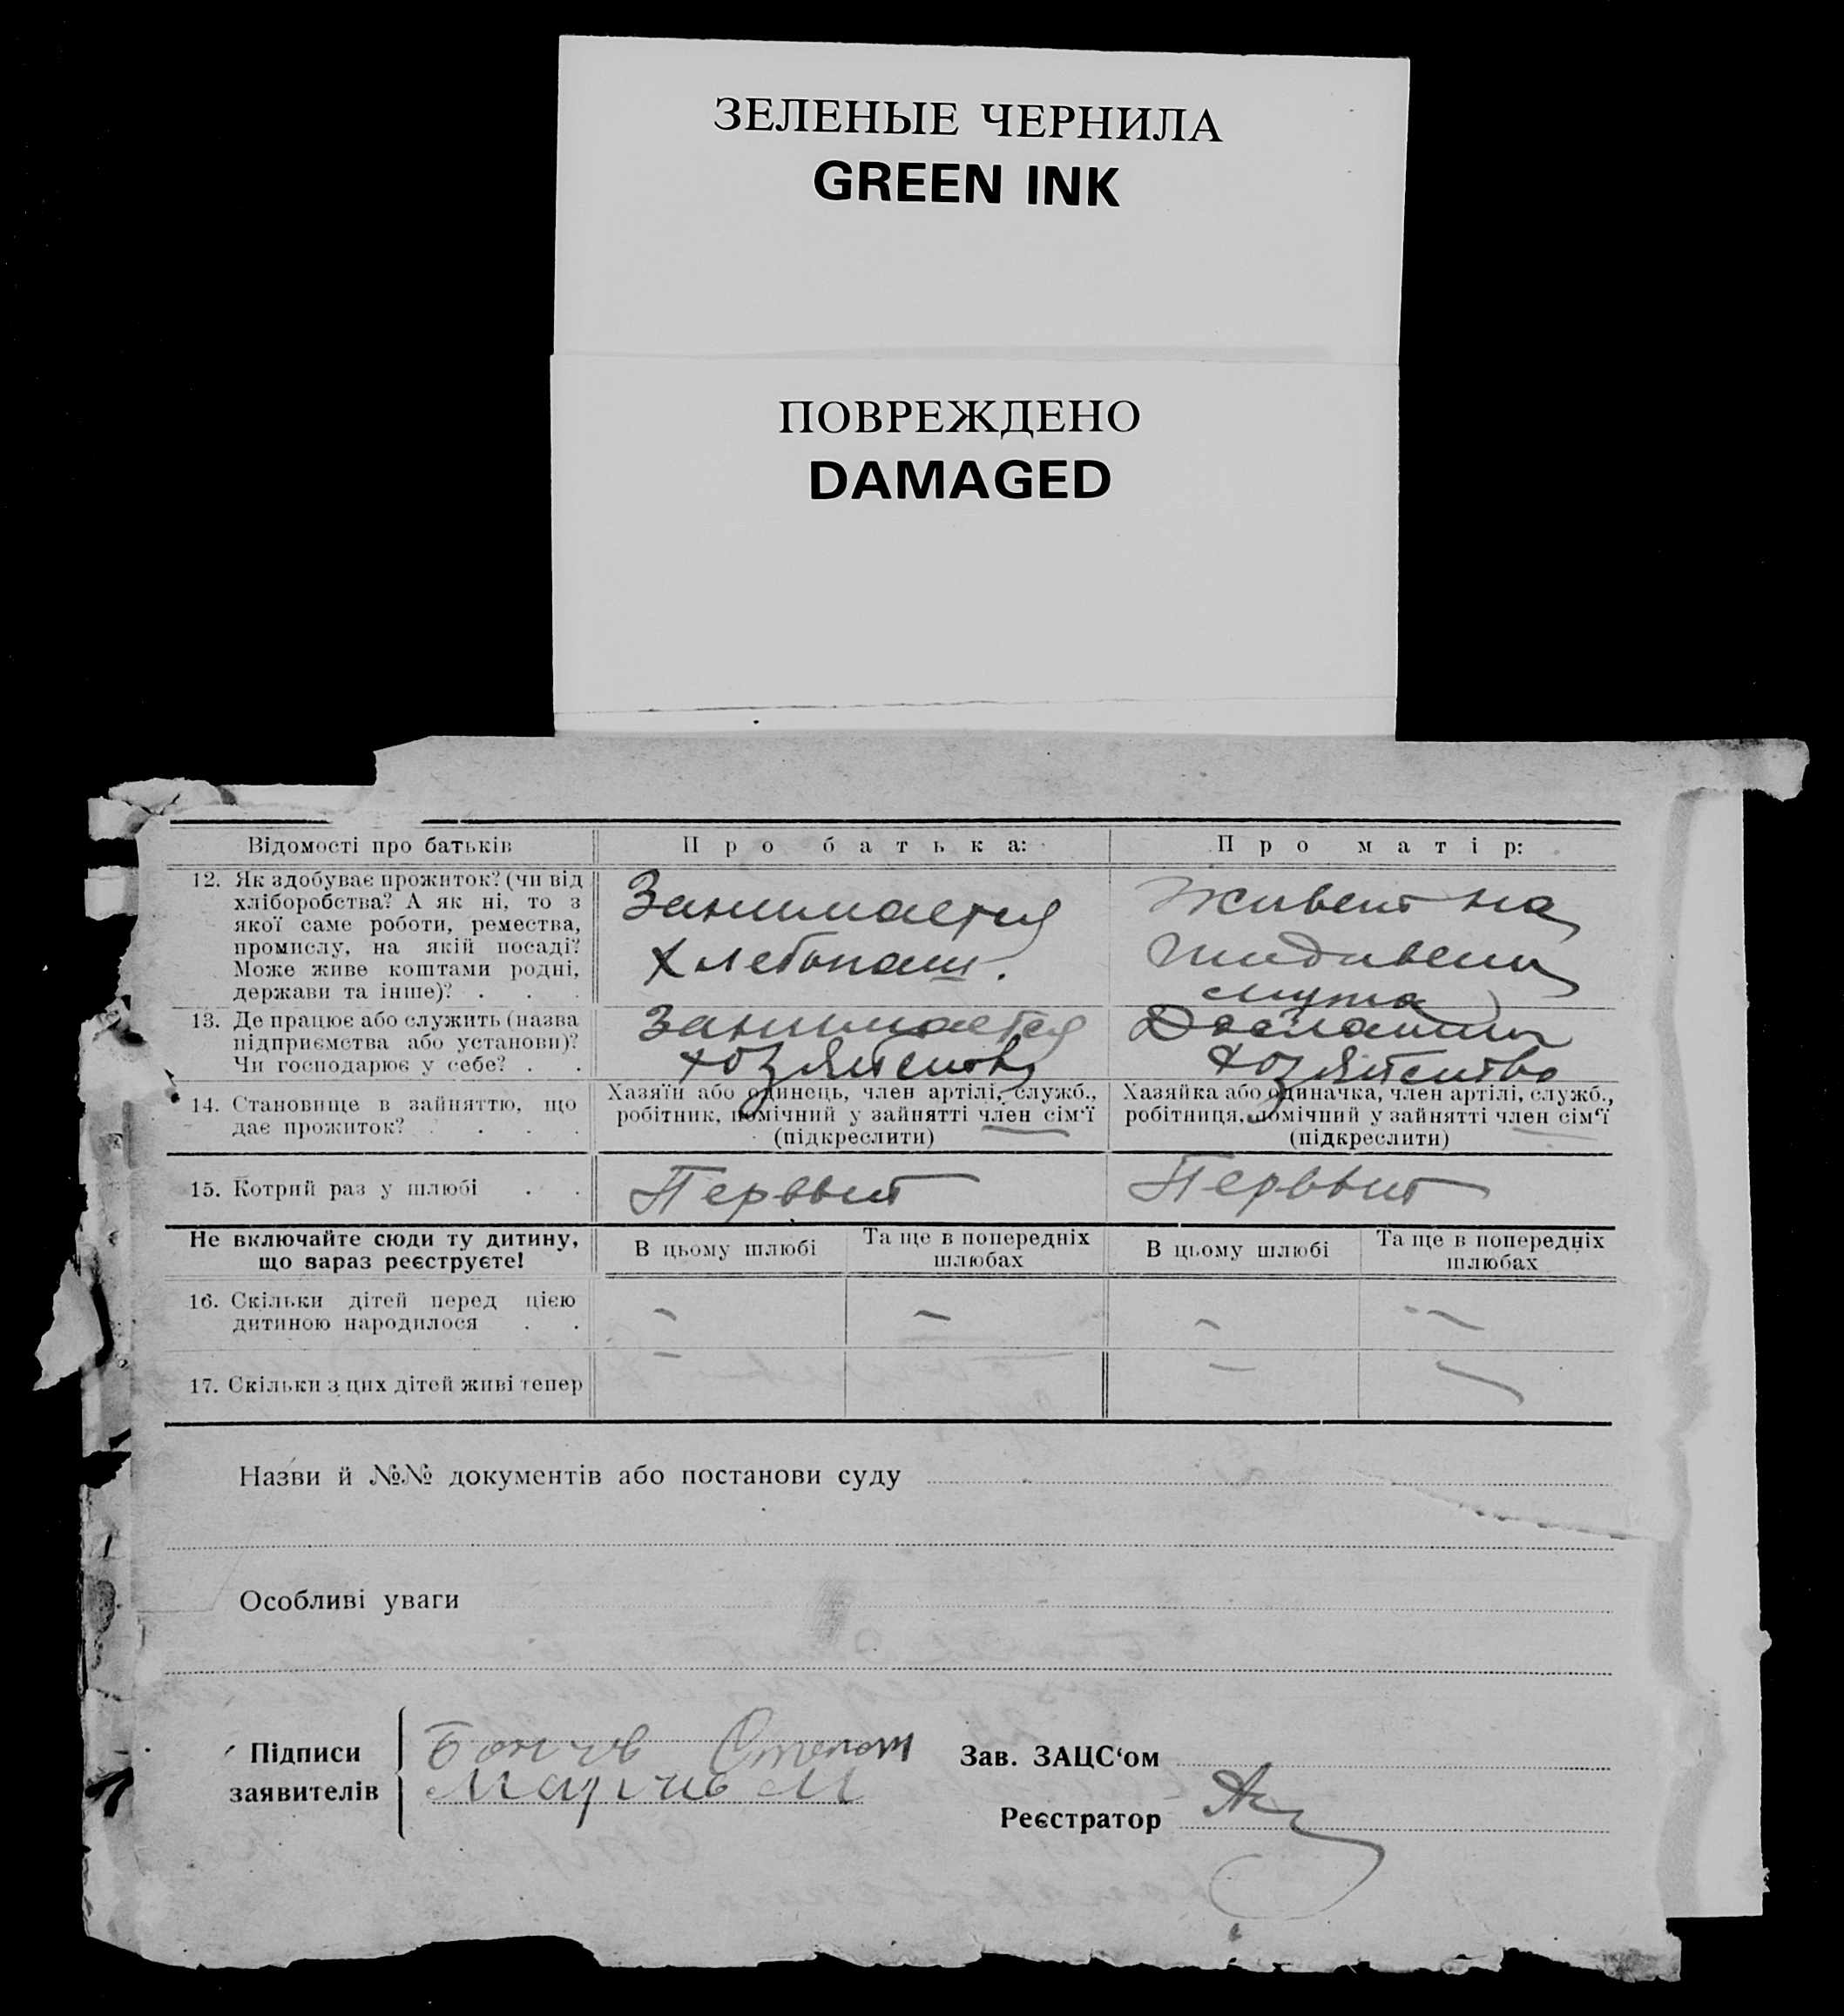 ЗЕЛЕНЫЕ ЧЕРНИЛА
GREEN INK
ПОВРЕЖДЕНО
DAMAGED
Відомості про батьків
Про батька:
Про матір:
12. Як здобуває прожиток? (чи від
хліборобства? А як ні, то з
якої саме роботи, ремества,
промислу, на якій посаді?
Може живе коштами родні,
держави та інше)? . . .
Занимается
Хлебопаш.
Живет на
иждивени
мужа
13. Де працює або служить (назва
підприємства або установи)?
Чи господарює у себе? . .
Занимается
хозяйство
Домашны
хозяйство
14. Становище в зайняттю, що
дає прожиток? . . . .
Хазяїн або одинець, член артілі, служб.,
робітник, помічний у зайнятті член сім'ї
(підкреслити)
Хазяйка або одиначка, член артілі, служб.,
робітниця, помічний у зайнятті член сім'ї
(підкреслити)
15. Котрий раз у шлюбі . .
Первый
Первый
Не включайте сюди ту дитину,
що зараз реєструєте!
В цьому шлюбі
Та ще в попередніх
шлюбах
В цьому шлюбі
Та ще в попередніх
шлюбах
16. Скільки дітей перед цією
дитиною народилося . .
– – – –
17. Скільки з цих дітей живі тепер
– – –
Назви й №№ документів або постанови суду
Особливі уваги
Підписи
заявителів
Степан
Зав. ЗАЦС'ом
Реєстратор